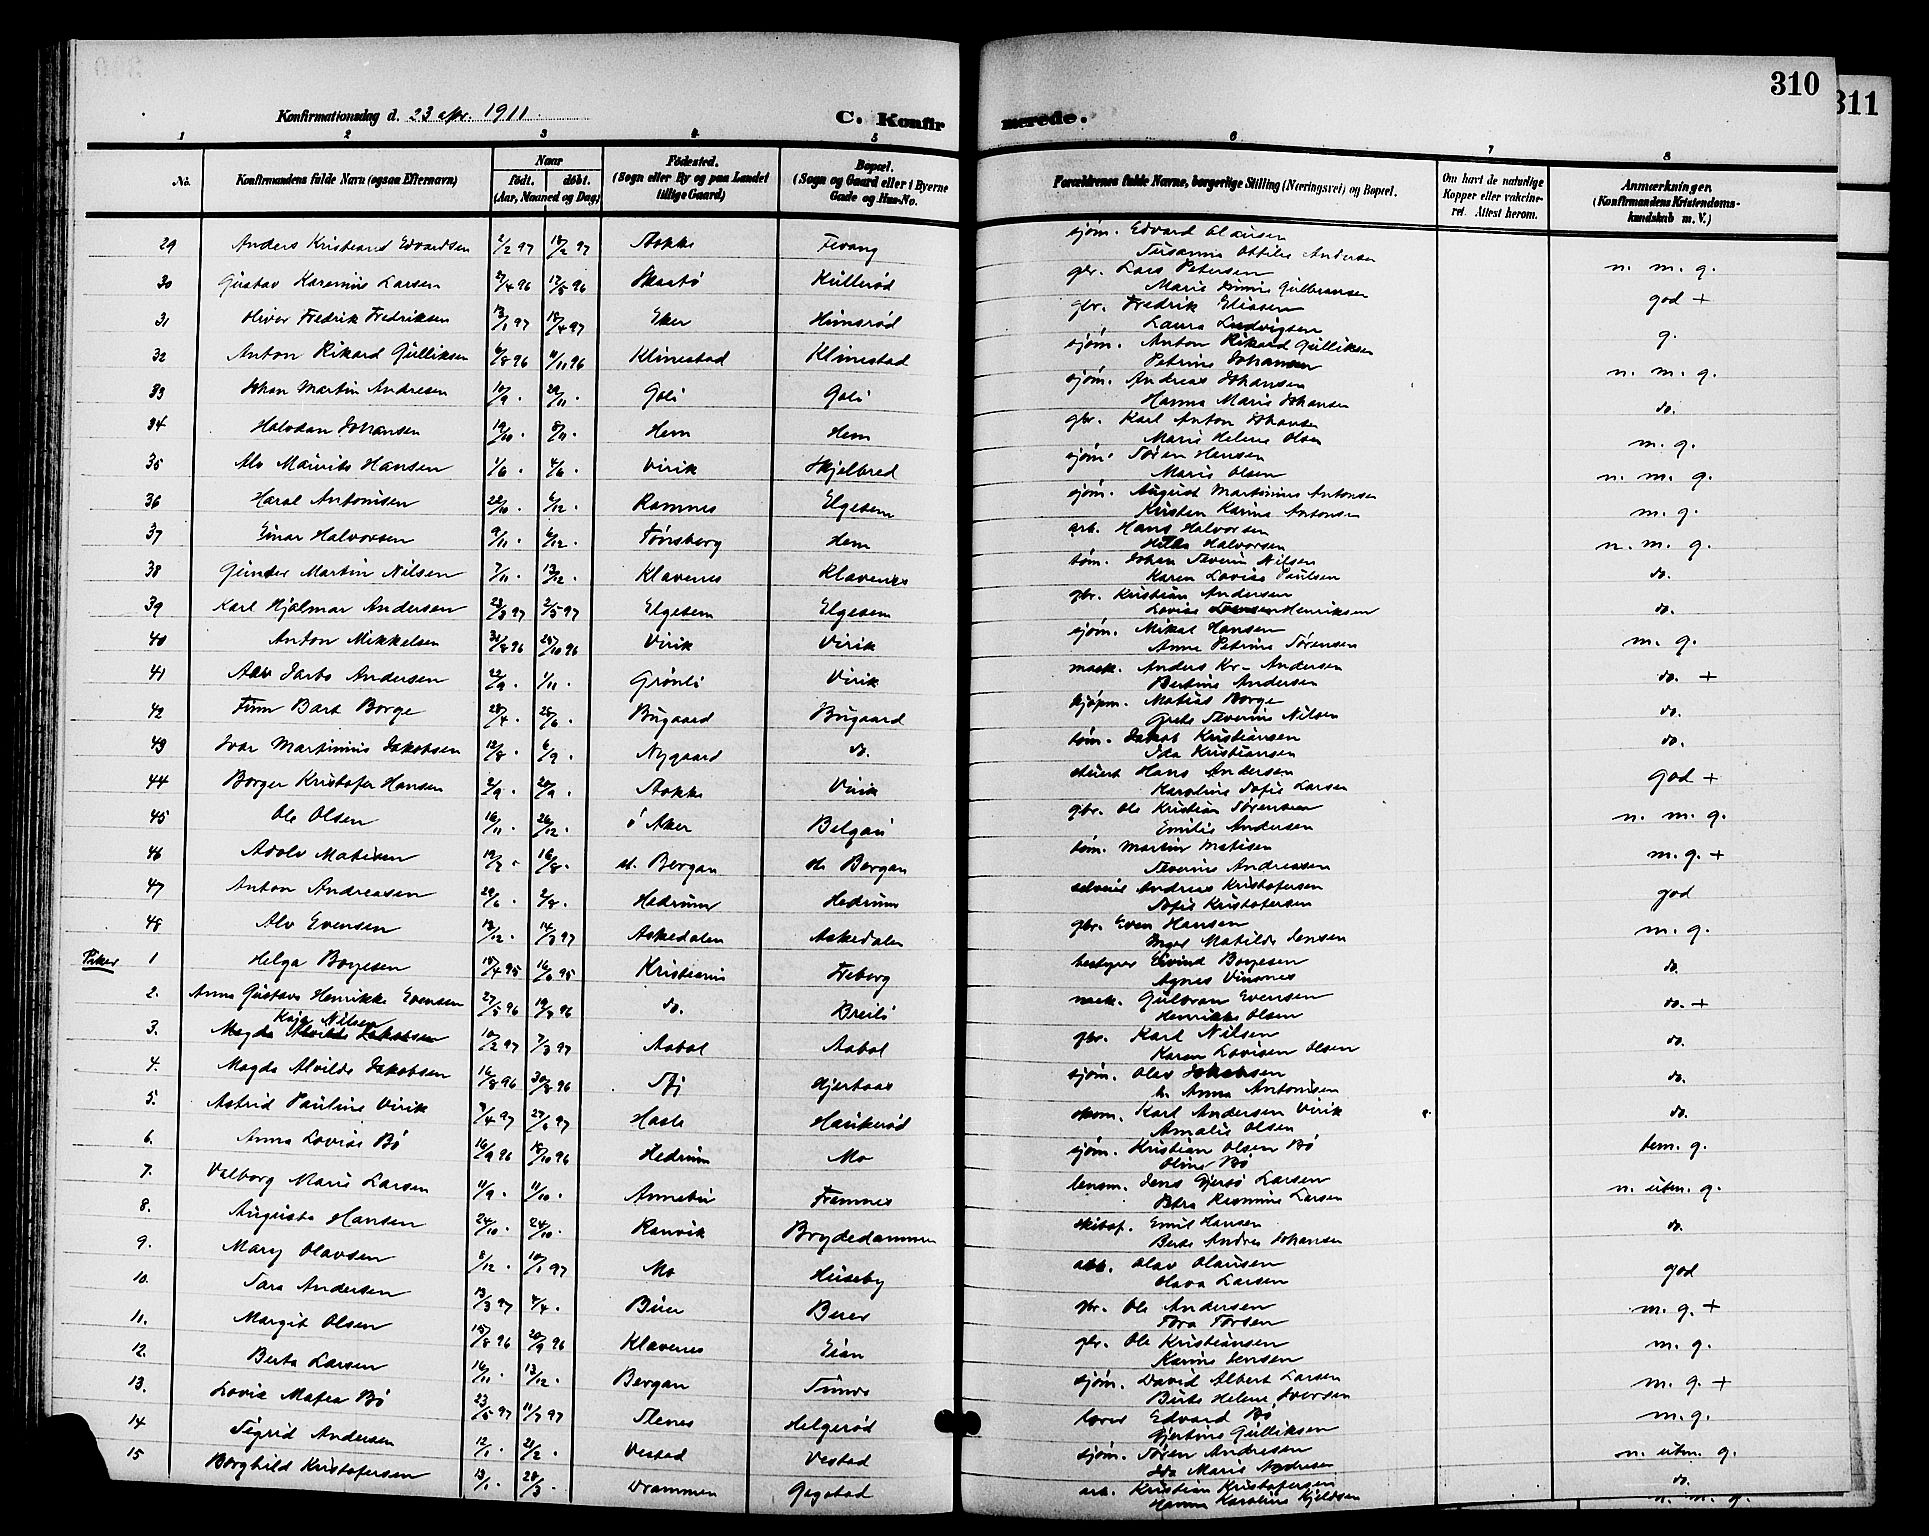 310
311
Konfirmationsdag d. 23 apr. 1911.
C. Konfirmerede.
1 2 3 4 5 6 7 8
No.
Konfirmandens fulde Navn (ogsaa Efternavn)
Naar
født. døbt.
(Aar, Maaned og Dag)
Fødested.
(Sogn eller By og paa Landet
tillige Gaard)
Bopæl.
(Sogn og Gaard eller i Byerne
Gade og Hus-No.
Forældrenes fulde Navne, borgerlige Stilling (Næringsvei) og Bopæl.
Om havt de naturlige
Kopper eller vakcine-
ret. Attest herom.
Anmærkninger.
(Konfirmandens Kristendoms-
kundskab m. V.)
29 Anders Kristiand Edvardsen 2/2 97 18/2 97 Aokke Fevang sjøm. Edvard Olausen
Susanna Ottilie Andersen n. m. g.
30 Gustav Karenius Larsen 2/4 96 12/5 96 Skaatø Kullerød gbr. Lars Petersen
Marie Gulbransen god +
31 Oliver Fredrik Fredriksen 13/1 97 18/4 97 Eker Himsrød gbr. Fredrik Eliasen
Laura Ludvigsen g.
32 Anton Rikard Gulliksen 6/8 96 11/11 96 Klinestad Klinestad sjøm. Anton Rikard Gulliksen
Petrine Johansen n. m. g.
33 Johan Martin Andresen 10/9 . 29/11 . Goli Goli sjøm. Andreas Johansen
Hanna Marie Johansen do.
34 Halvdan Johansen 19/10 . 8/11 . Hem Hem gbr. Karl Anton Johansen
Marie Helene Olsen m. g.
35 Alv Mauritz Hansen 1/6 . 4/6 . Virik Skjelbred sjøm. Søren Hansen
Marie Olsen n. m. g.
36 Haral Antonisen 22/10 . 6/12 . Ramnes Elgesem sjøm. August Martinius Antonsen
Kirsten Karine Antonsen m. g.
37 Einar Halvorsen 9/11 . 6/12 . Tønsberg Hem arb. Hans Halvorsen
Hilda Halvorsen n. m. g.
38 Gunder Martin Nilsen 7/11 . 13/12 . Klavenes Klavenes tøm. Johan Severin Nilsen
Karen Lovise Paulsen do.
39 Karl Hjalmar Andersen 23/3 97 2/5 97 Elgesem Elgesem gbr. Kristian Andersen
Lovise Henriksen do.
40 Anton Mikkelsen 31/8 96 25/10 96 Virik Virik sjøm. Mikal Hansen
Anne Petrine Sørensen m. g.
41 Alv Jarbo Andersen 22/9 . 1/11 . Grønli Virik mask. Anders Kr. Andersen
Bertine Andersen do. +
42 Finn Bart Borge 28/4 . 28/6 . Bugaard Bugaard kjøpm. Matias Borge
Grete Severine Nilsen do.
43 Ivar Martinius Jakobsen 12/8 . 6/9 . Nygaard do. tøm. Jakob Kristiansen
Ida Kristiansen do.
44 Borger Kristofer Hansen 2/9 . 20/9 . Aokke Virik stuert Hans Andersen
Karoline Sofie Larsen god +
45 Ole Olsen 16/11 . 26/12 . ø Aker Belgau gbr. Ole Kristian Sørensen
Emilie Andersen n. m. g.
46 Adolv Matisen 19/7 . 16/8 . st. Bergan st. Bergan tøm. Martin Matisen
Severine Andreasen m. g. +
47 Anton Andreasen 29/6 . 2/8 . Hedrum Hedrum selveier Andreas Kristofersen
Sofie Kristofersen god
48 Alv Evensen 13/12 . 14/3 97 Askedalen Askedalen gbr. Even Hansen
Inger Matilde Jensen m. g.
Piker 1 Helga Boyesen 18/4 95 16/6 95 Kristiania Freberg bestyrer Eivind Boyesen
Agnes Vinsnes do.
2. Anna Gustava Henrikke Evensen 27/5 96 19/7 96 do. Breili mask. Gulbran Evensen
Henrikke Olsen do. +
Kaja Nilsen
3. Magda Alvilde Jakobsen 10/2 97 7/3 97 Aabol Aabol gbr. Karl Nilsen
Karen Lovisen Olsen do.
4. Magda Alvilde Jakobsen 16/8 96 30/8 96 Sfj Hjertaas sjøm. Olav Jakobsen
h. Anna Antonisen do.
5. Astrid Pauline Virik 7/4 97 27/6 97 Hasle Haukerød skom. Karl Andersen Virik
Amalie Olsen do.
6. Anna Lovise Bø 16/9 96 18/10 96 Hedrum Mo sjøm. Kristian Olsen Bø
Oline Bø tem. g.
7. Valborg Marie Larsen 11/9 . 11/10 . Annebu Framnes lensm. Jens Gjersø Larsen
Petra Rasmine Larsen n. utm. g.
8. Augusta Hansen 24/10 . 24/10 . Ranvik Brydedammen skibsf. Emil Hansen
Berte Andrea Johansen do.
9. Mary Olavsen 8/12 . 10/1 97 Mo Huseby arb. Olav Olausen
Olava Larsen god
10. Sara Andersen 13/3 97 4/4 . Buer Buer gbr. Ole Andersen
Tora Torsen m. g. +
11. Margit Olsen 15/8 96 20/9 96 Klavenes Eian gbr. Ole Kristiansen
Karine Jensen m. g.
12. Berta Larsen 16/11 . 13/12 . Bergan Sunde sjøm. David Albert Larsen
Birte Helene Iversen m. g. +
13. Lovis Matea Bø 23/5 97 11/7 97 Stenes Helgerød lærer Edvard Bø
Gjertine Gulliksen m. g.
14 Sigrid Andersen 12/1 . 21/2 . Vestad Vestad sjøm. Søren Andresen
Ida Marie Andresen n. utm. g.
15 Borghild Kristofersen 13/1 . 28/3 . Drammen Gogstad arb. Kristian Kristofersen
Hanna Karoline Kjeldsen do.
n. m. g.